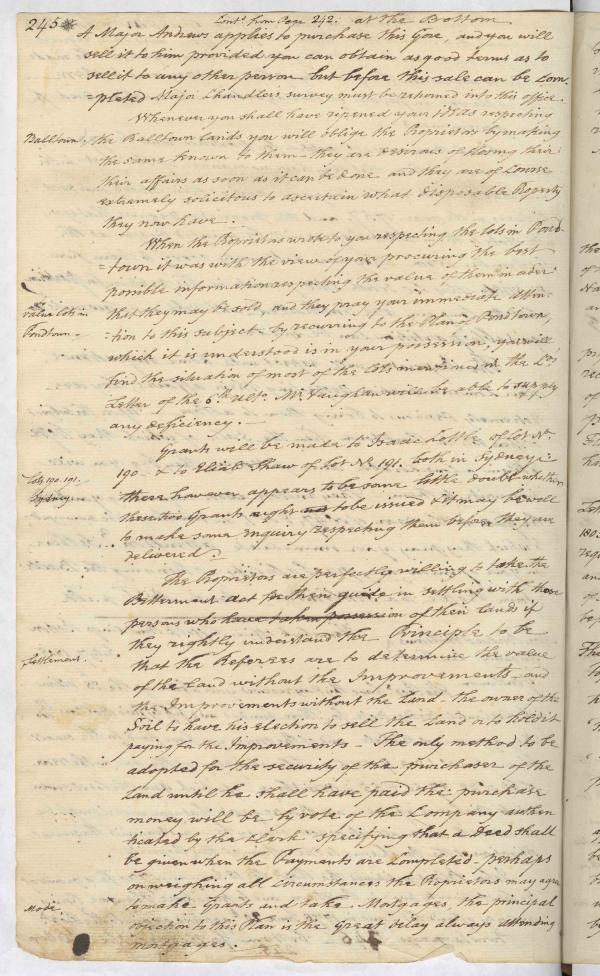 245* Contd from Page 242. at the Bottom
A Major Andrews applies to purchase this Gore, and you will
sell it to him provided you can obtain as good terms as to
sell it to any other person but before this sale can be Com-
=pleted Major Chandlers survey must be returned into this office.
Whenever you shall have ripened your ideas respecting
Balltown. the Balltown lands you will oblige the Proprietors by making
the same known to them - they are desirous of closing their
their affairs as soon as it can be done and they are of course
extremely solicitous to ascertain what disposable Property
they now have.
When the Proprietors wrote to you respecting the lots in Pond-
town it was with the view of your procuring the best
possible information respecting the value of them in order
value lots in that they may be sold, and they pray your immediate atten-
Pondtown. =tion to this subject - by recurring to the Plan of Pondtown,
which it is understood is in your possession, you will
find the situation of most of the lots mentioned in the
Letter of the 6th ulto. Mr Vaughan will be able to supply
any deficiency. -
Grants will be made to Isaac of Lot No.
Lots 190. 191. 190 & to Eliab Shaw of Lot No 191. both in Sydney:
Sydney. there however appears to be some little doubt whether
these two Grants ought to be issued & it may be well
to make some inquiry respecting them before they are
delivered.
The Proprietors are perfectly willing to take the
Betterment act for their guide in settling with those
persons who have taken possession of their lands if
they rightly understand the Principle to be
Settlement. that the Referees are to determine the value
of the land without the Improvements - and
the Improvements without the Land - the owner of the
Soil to have his election to sell the Land or to hold it
paying for the Improvements - The only method to be
adopted for the security of the purchaser of the
Land until he shall have paid the purchase
money will be by vote of the Company authen
ticated by the Clerk specifying that a Deed shall
be given when the Payments are Completed - perhaps
on weighing all circumstances the Proprietors may agree
Mode. to make Grants and take Mortgages, the principal
objection to this Plan is the great delay always attending
mortgages.